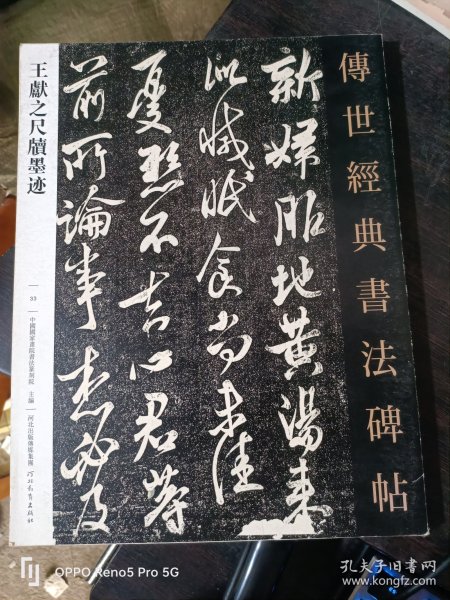 傳世經典書法碑帖
新婦服地黃湯來
似減眠食尚未佳
憂懸不去心君等
前所論事想必及
王獻之尺牘墨迹
33
中國國家畫院書法篆刻院 主編
河北出版傳媒集團 河北教育出版社
OPPO Reno5 Pro 5G
孔夫子旧书网
www.kongfz.com